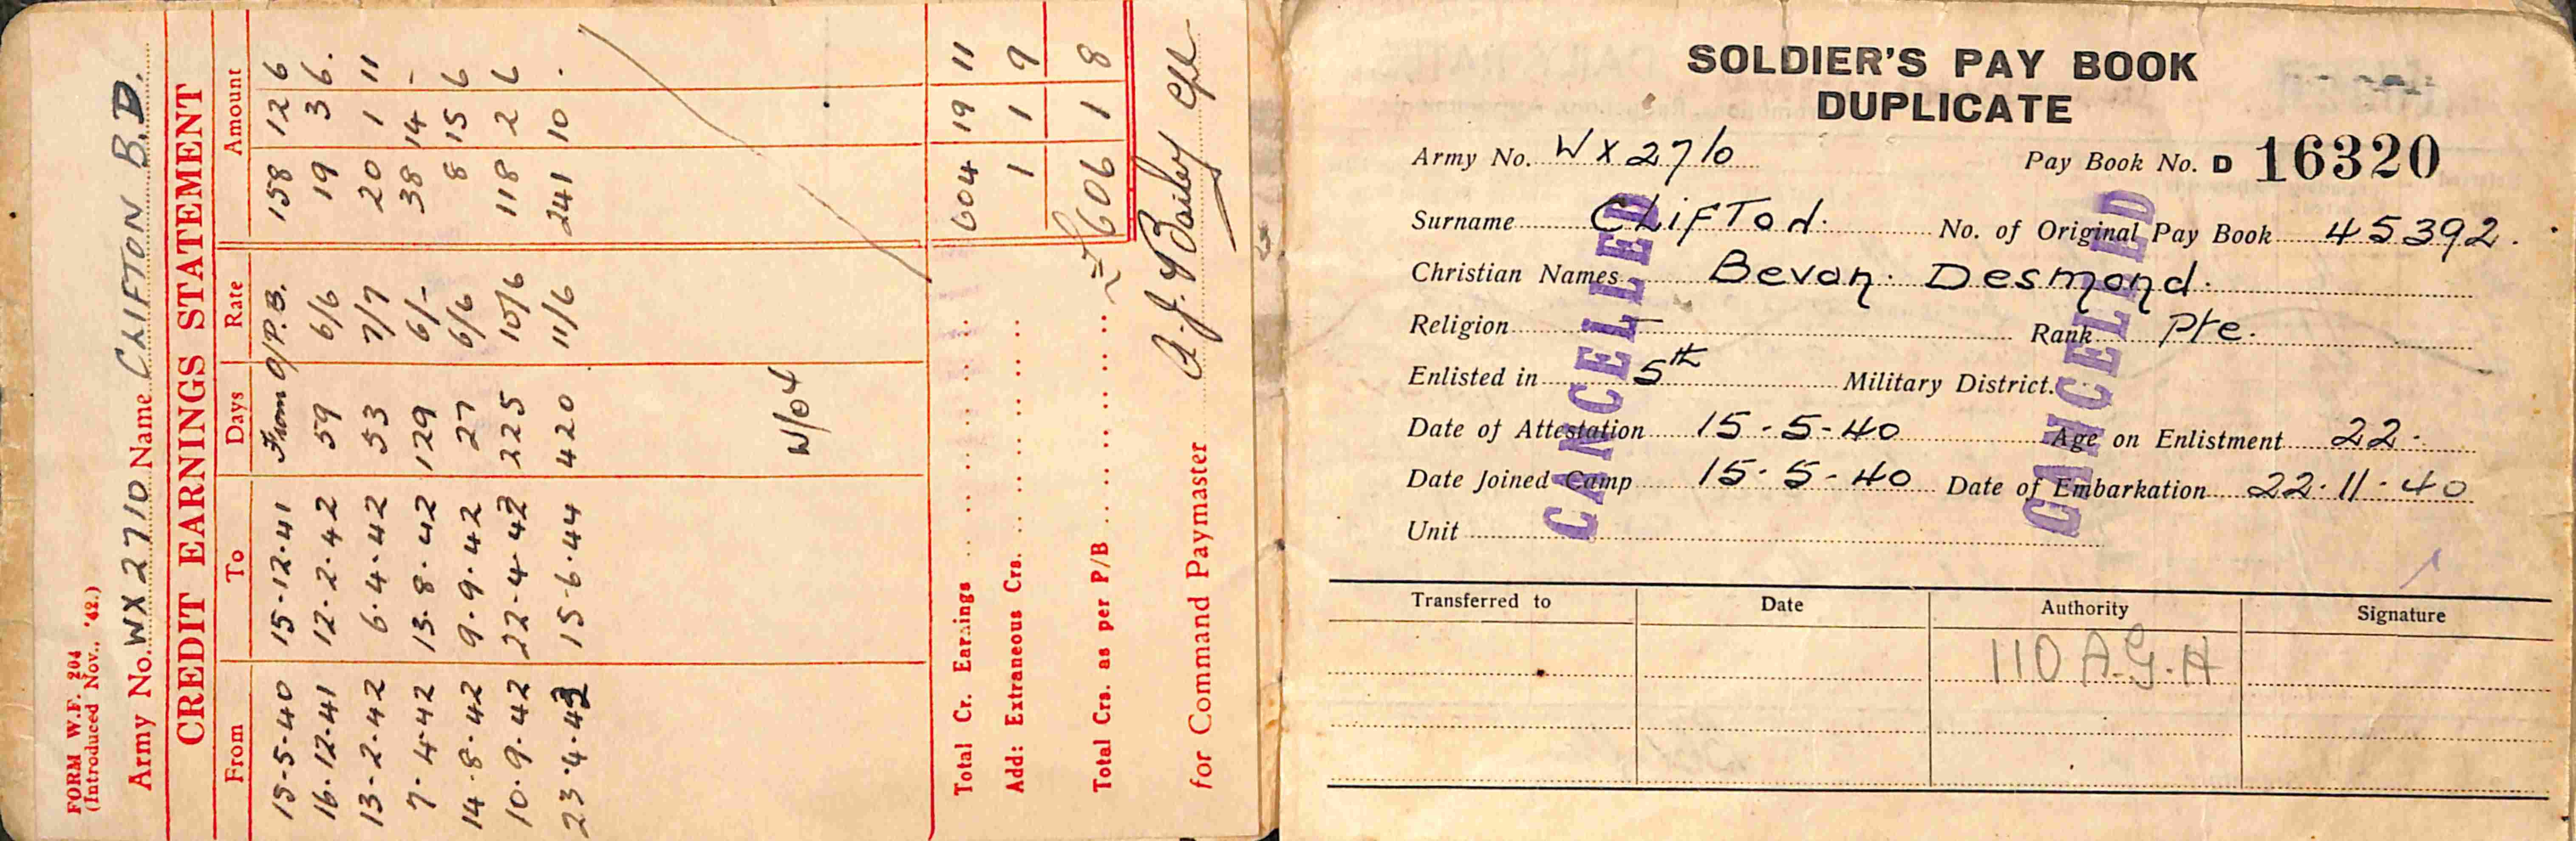 FORM W.F. 204
(Introduced Nov., '42.)
Army No. WX2710 Name CLIFTON B.D.
CREDIT EARNINGS STATEMENT
From To Days Rate Amount
15-5-40 15-12-41 From O/P.B. 158 12 6
16-12-41 12-2-42 59 6/6 19 3 6.
13-2-42 6-4-42 53 7/7 20 1 11
7-4-42 13-8-42 129 6/- 38 14 -
14-8-42 9-9-42 27 6/6 8 15 6
10-9-42 22-4-43 225 10/6 118 2 6
23-4-43 15-6-44 420 11/6 241 10 .
W/O4
Total Cr. Earnings 604 19 11
Add: Extraneous Crs. 1 1 9
Total Crs. as per P/B 606 1 8
for Command Paymaster A.J. Bailey Cpl
SOLDIER'S PAY BOOK
DUPLICATE
Army No. WX2710 Pay Book No. D 16320
Surname CLIFTON. No. of Original Pay Book 45392.
Christian Names Bevan. Desmond.
Religion Rank Pte.
Enlisted in 5th Military District.
Date of Attestation 15-5-40 Age on Enlistment 22.
Date Joined Camp 15-5-40 Date of Embarkation 22.11.40
Unit
CANCELLED
CANCELLED
Transferred to Date Authority Signature
110 A.G.H